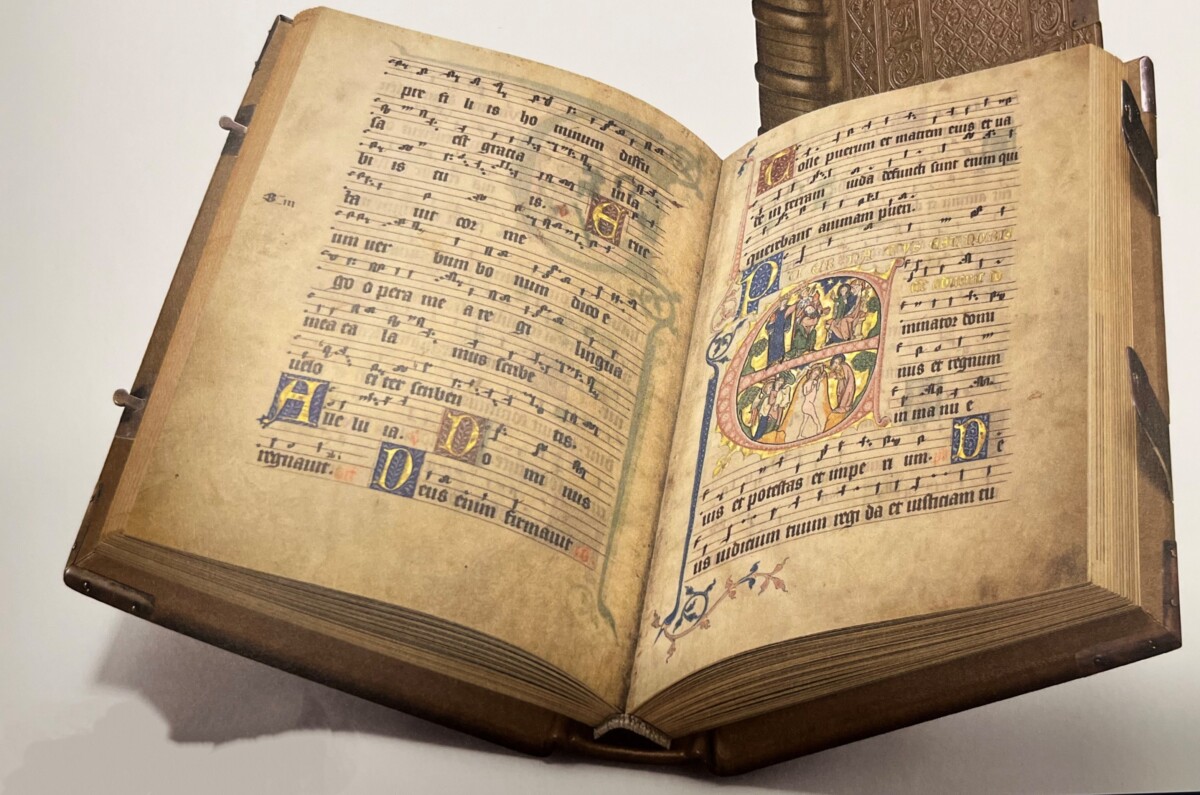 pre fi li is ho minum diffu
sa est gratia
bi is tu in la
is. E ruc
ta uit cor me
um uer bum bo num dico e
go o pera me a re gi
mea ca la mus scribe lingua
uelo ci ter scriben
A lle lu ia. D tis.
o mi nus
regnauit. D eus enim firmauit
T olle puerum et matrem eius et ua
de in terram iuda defuncti sunt enim qui
querebant animam pueri.
P
E
minator domi
nus et regnum
in ma nu e
ius et potestas et impe ri um. D e
us iudicium tuum regi da et iusticiam tu